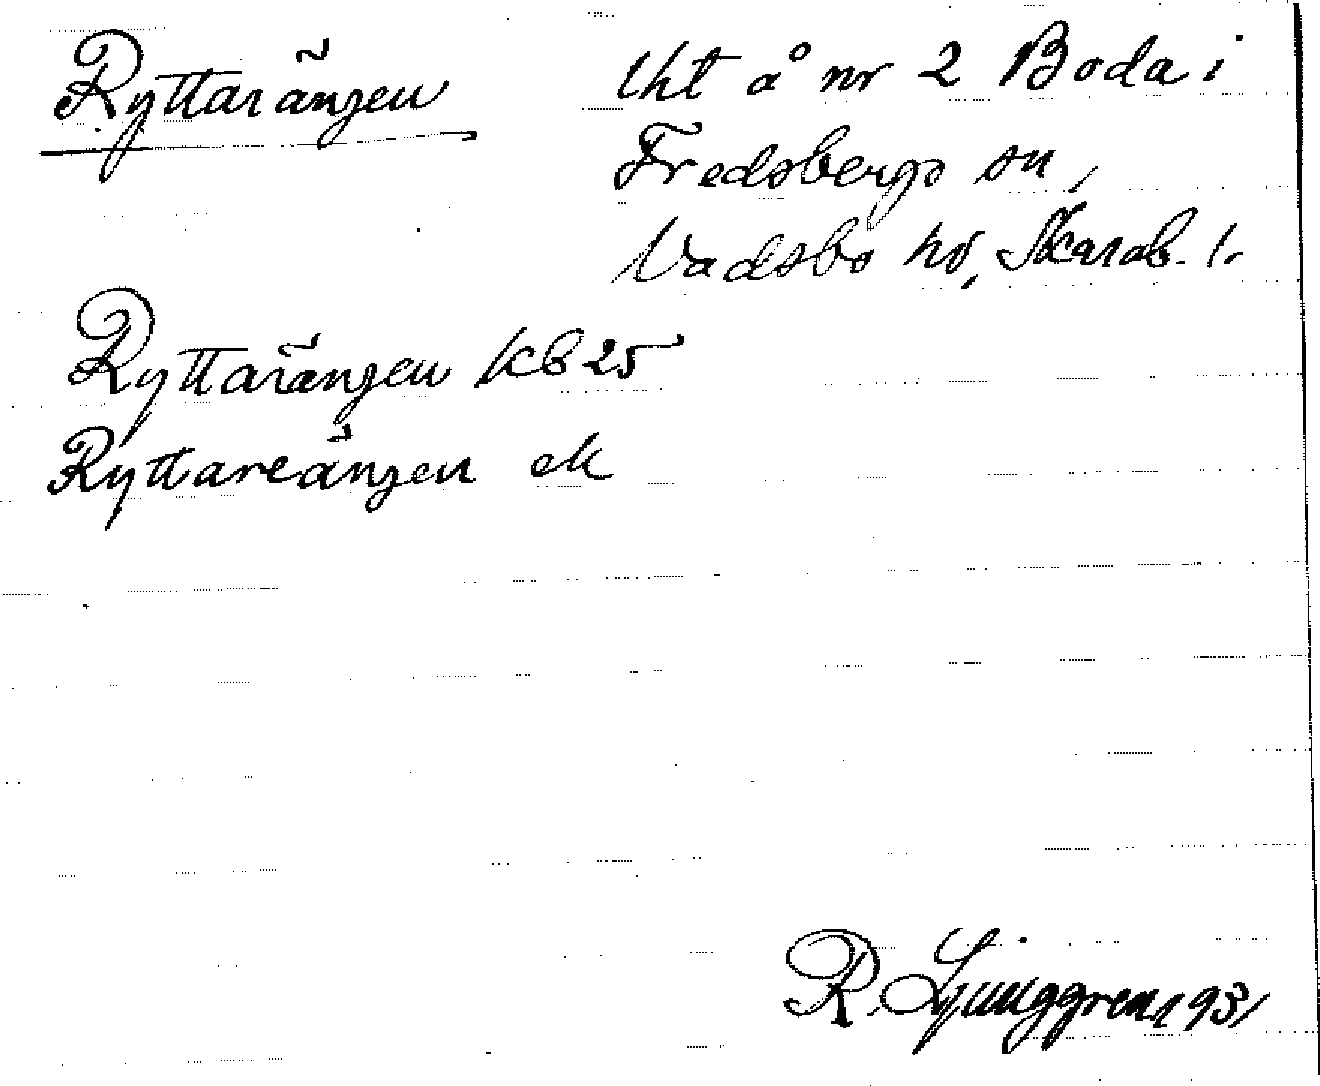 Ryttarängen
Uht å nr 2 Boda i
Fredsbergs sn,
Vadsbo hd, Skarab. l.
Ryttarängen KB 25
Ryttareängen ek
R. Ljunggren 1931